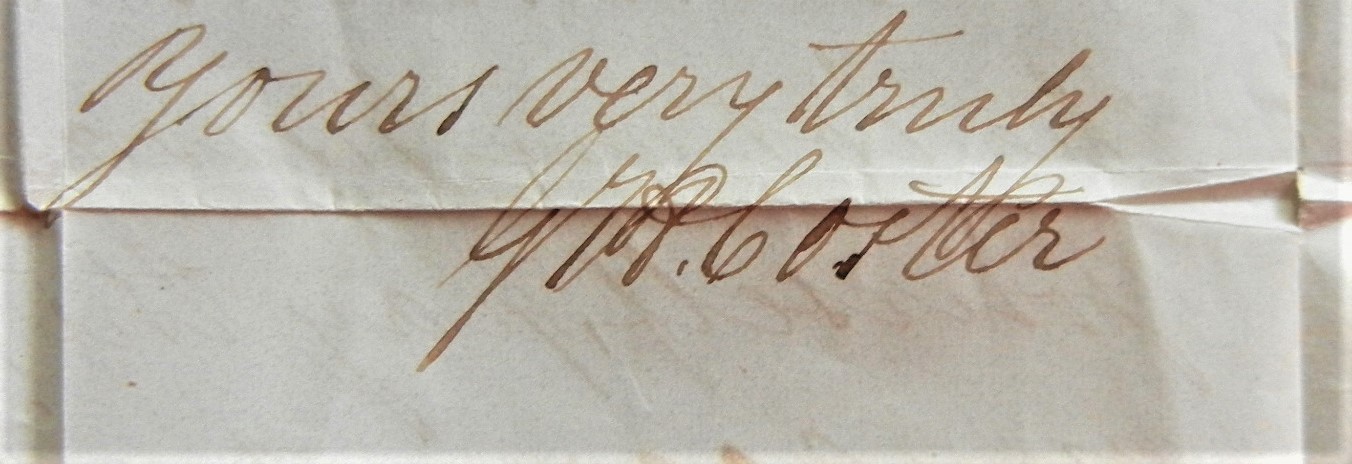 Yours very truly
Coster